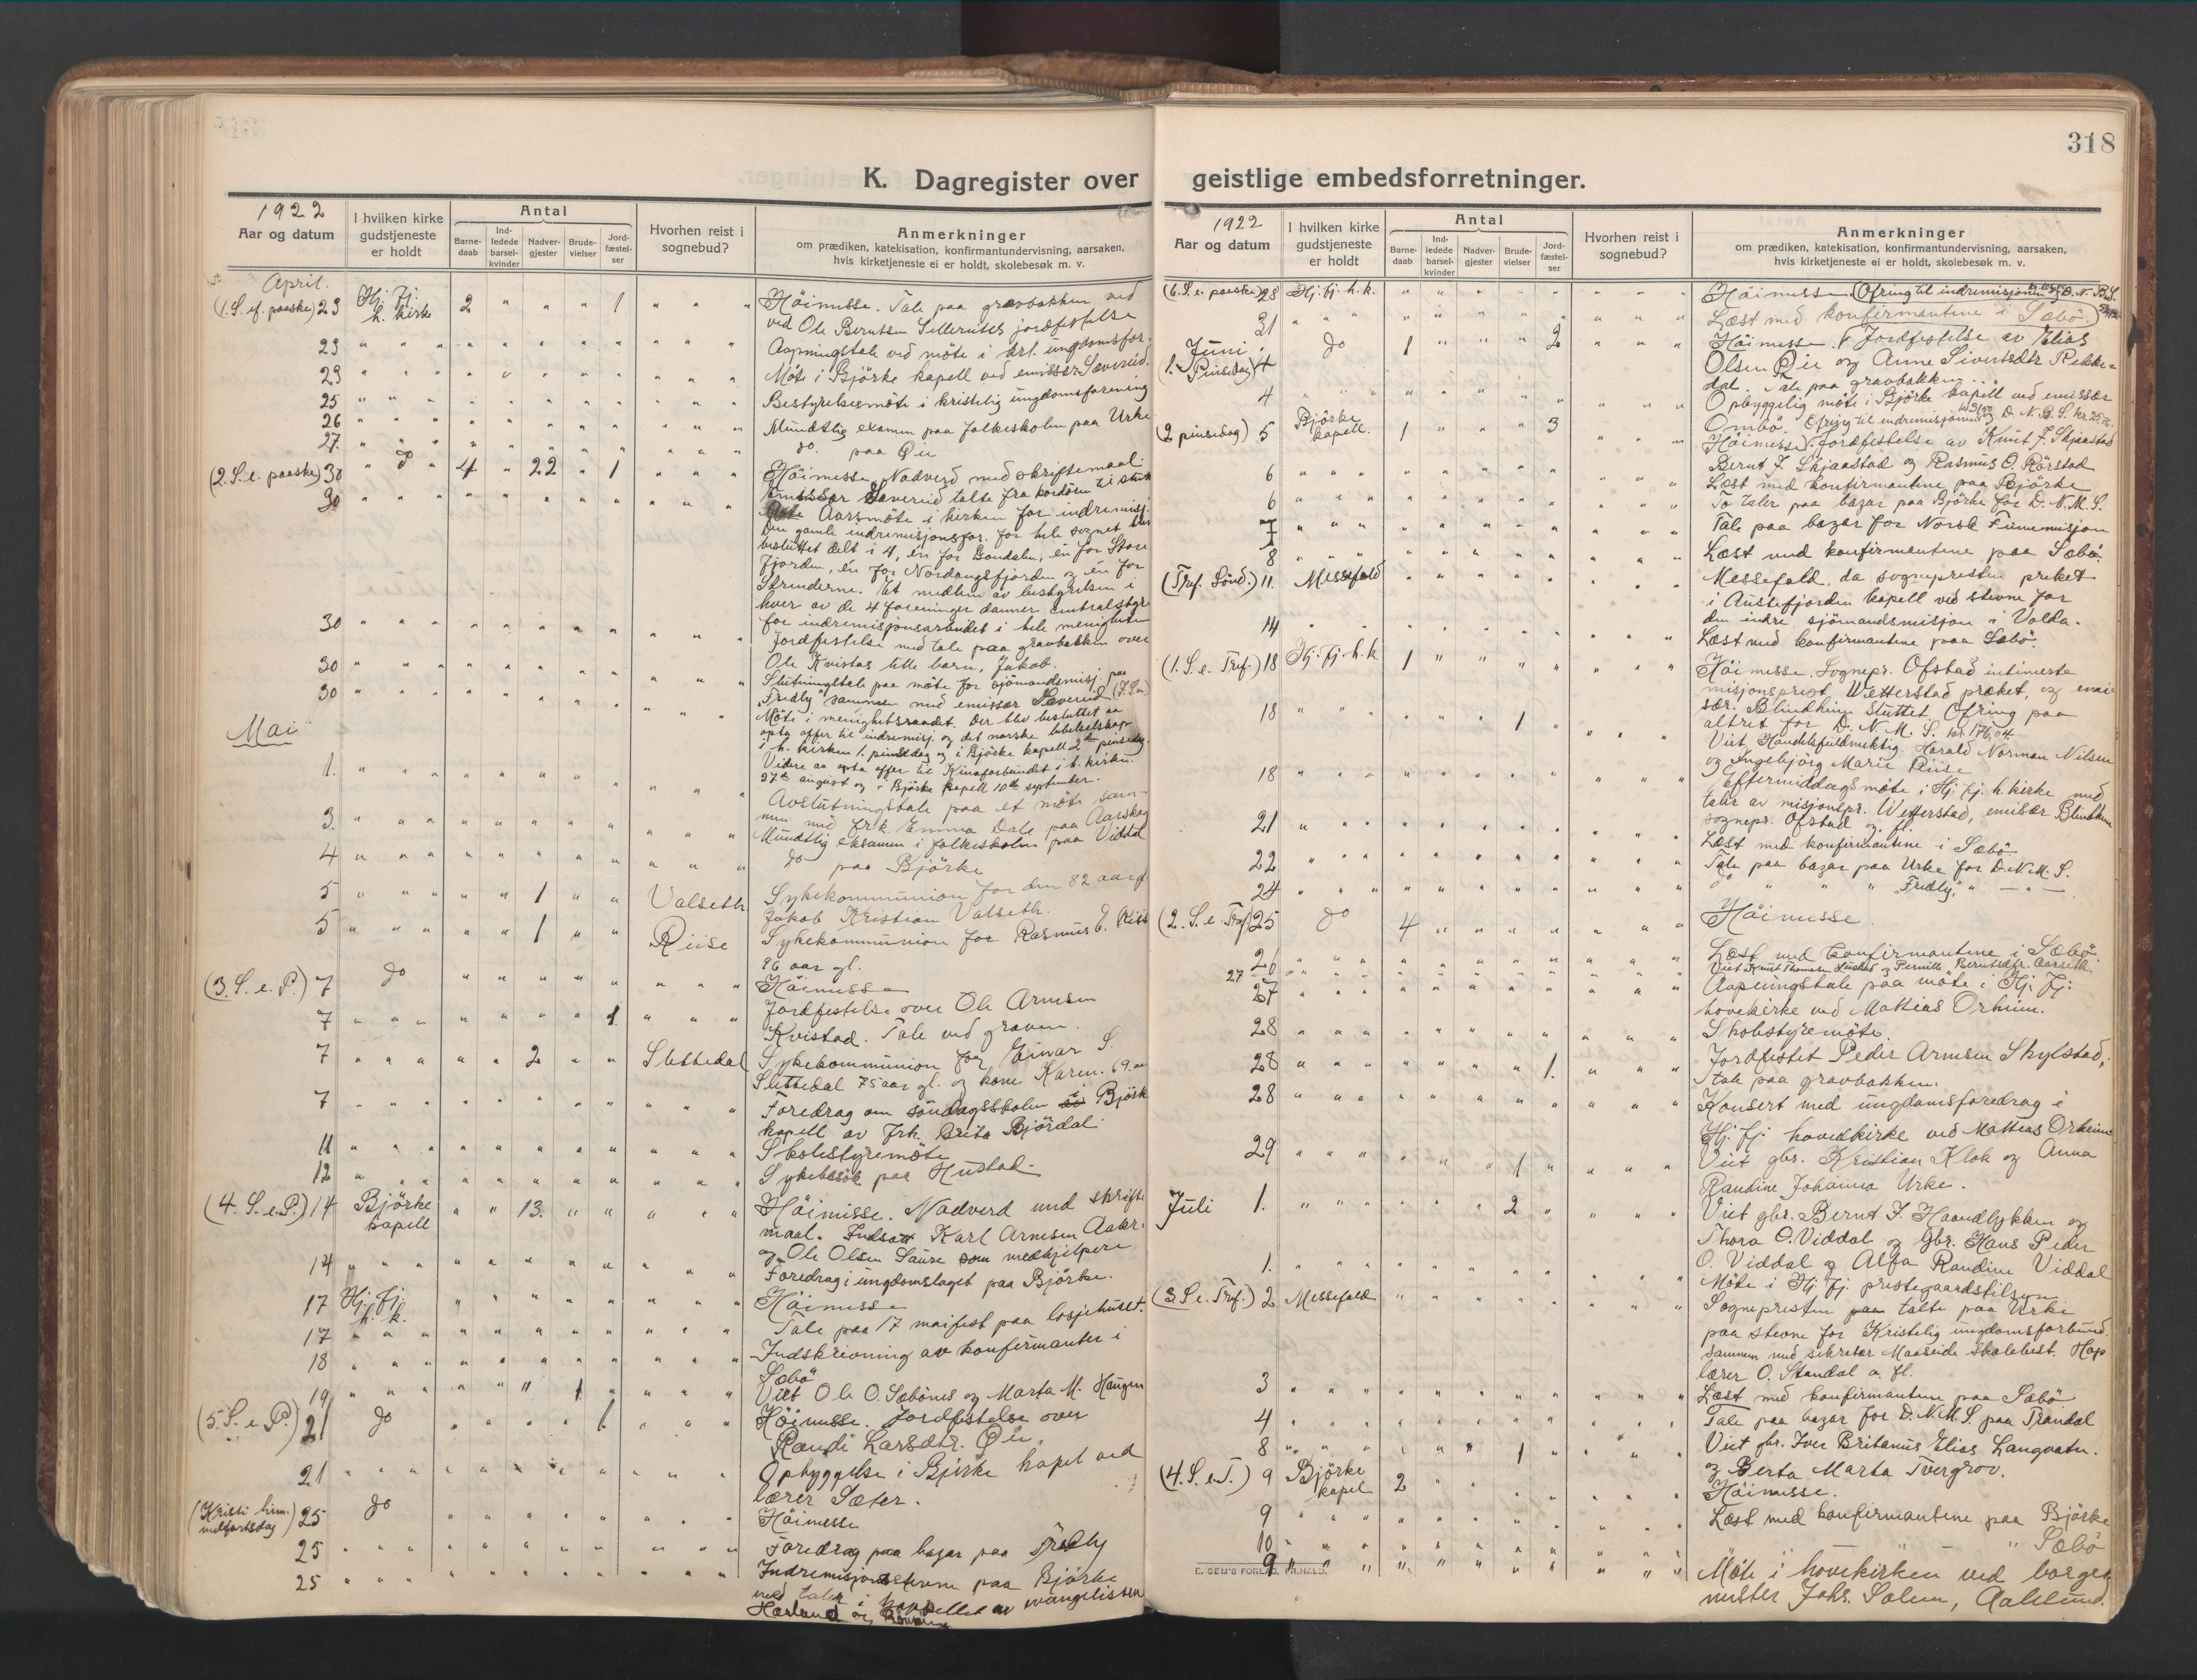 318
K. Dagregister over geistlige embedsforretninger.
1922
Aar og datum
I hvilken kirke gudstjeneste er holdt
Antal
Barne-daab
Ind-ledede barsel-kvinder
Nadver-gjester
Brude-vielser
Jord-fæstel-ser
Hvorhen reist i sognebud?
Anmerkninger
om prædiken, katekisation, konfirmantundervisning, aarsaken,
hvis kirketjeneste ei er holdt, skolebesøk m. v.
April.
(1. S. ef. paaske) 23 Hj. fj. h. kirke 2 " " " 1 " " " Höimesse. Tale paa gravbakken ved
ved Ole Berntsen jordfestelse
23 Aapningstale ved möte i krl. ungdomsfor.
23 Möte i Bjørke kapell ved emissær Sævereid.
25 Bestyrelsesmöte i kristelig ungdomsforening
26 Mundtlig examen paa folkeskolen paa Urke
27. do. paa Øie
(2. S. e. paaske) 30 " do " 4 " 22 " 1 Höimesse. Nadverd med skriftemaal
Emissær Sævereid talte fra kordören
30 Aarsmöte i kirken for indremisj.
Den gamle indremisjonsfor. for hele sognet blev
besluttet delt i 4, én for Bondalen, én for Store
fjorden, én for Nordangsfjorden og én for
Skrinderne. Et medlem av bestyrelsen i
hver av de 4 foreninger danner centralstyre
for indremisjonsarbeidet i hele menigheten
30 Jordfestelse med tale paa gravbakken over
Ole Kvistas lille barn, Jakob.
30 Slutningstale paa möte for sjömandsmisj. paa
"Fridly" sammen med emissær Sævereid
30 Möte i menighetsraadet. Der blev besluttet aa
opta offer til indremisj. og det norske bibelselskap
i h. kirken 1. pinsedag og i Bjørke kapell 2den pinsedag.
Videre aa opta offer til Kinaforbundet i h. kirken
27de august og i Bjørke kapell 10de september.
Mai
1. Avslutningstale paa et möte sam-
men med frk. Emma Dale paa Aarskog
3. Mundtlig eksamen i folkeskolen paa Viddal
4 do paa Bjørke
5 1 Valseth Sykekommunion for den 82 aar gl.
Jakob Kristian Valseth.
5 1 Riise Sykekommunion for Rasmus E. Riise
86 aar gl.
(3. S. e. P.) 7 do Höimesse
7 1 Jordfestelse over Ole Arnesen
Kvistad. Tale ved graven.
7 2 Slettedal Sykekommunion for Einar S.
Slettedal 75 aar gl. og kone Karen. 69. aar
7 Foredrag om söndagsskolen i Bjørke
kapell av frk. Brita Björdal.
11 Skolestyremöte
12 Sykebesök paa Hustad.
(4. S. e. P.) 14 Bjørke kapell " " 13. Höimesse. Nadverd med skrifte
maal. Indsatt Karl Arnesen Aakre
og Ole Olsen Saure som medhjelpere
14 Foredrag i ungdomslaget paa Bjørke.
17 Hj. fj. h. k. Höimesse
17 Tale paa 17 maifest paa losjehuset.
18 Indskrivning av konfirmanter i
Sæbö
19 1 Viet Ole O. Sæbönes og Marta M. Haugen
(5. S. e P.) 21 do 1 Höimesse. Jordfestelse over
Randi Larsdtr. Øie.
21 Opbyggelse i Bjørke kapel ved
lærer Sæter.
(Kristi himmelfartsdag) 25 do Höimesse
25 Foredrag paa bazar paa Fridly
25 Indremisjonsstevne paa Bjørke
med taler i kapellet av evangelisten
1922
Aar og datum
I hvilken kirke gudstjeneste er holdt
Antal
Barne-daab
Ind-ledede barsel-kvinder
Nadver-gjester
Brude-vielser
Jord-fæstel-ser
Hvorhen reist i sognebud?
Anmerkninger
om prædiken, katekisation, konfirmantundervisning, aarsaken,
hvis kirketjeneste ei er holdt, skolebesøk m. v.
(6. S. e. paaske) 28 Hj. fj. h. k. Höimesse
31 Læst med konfirmantene i Sæbö. (Ofring til indremisjonen og D. N. B. S.
Juni
(1. Pinsedag) 4 do 1 2 Höimesse. Jordfestelse av Elias
Olsen Øie og Anne Sivertsdtr Rekke-
dal. Tale paa gravbakken
4 Opbyggelig möte i Bjørke kapell ved emissær
Ombo. Ofring til indremisjonen og D. N. B. S.
(2 pinsedag) 5 Bjørke kapell. 1 3 Höimesse. Jordfestelse av Knut J. Skjaastad
Bernt J. Skjaastad og Rasmus O. Rörstad
6 Læst med konfirmantene paa Bjørke
6 To taler paa bazar paa Bjørke for D. N. M. S.
7 Tale paa bazar for Norsk Finnemisjon
8 Læst med konfirmantene paa Sæbö.
(Tref. Sönd.) 11. Messefald Messefald, da sognepresten preket
i Austefjorden kapell ved stevne for
den indre sjömandsmisjon i Volda.
14 Læst med konfirmantene paa Sæbö.
(1. S. e. Tref.) 18 Hj. fj. h. k. 1 Höimesse. Sognepr. Ofstad intimerte
misjonsprest Wetterstad præket, og emis-
sær Blindheim sluttet. Ofring paa
altret for D. N. M. S. kr. 176,04.
18 1 Viet Handelsfuldmektig Harald Norman Nilsen
og Ingebjørg Marie Riise
18 Eftermiddagsmöte i Hj. fj. h. kirke med
taler av misjonspr. Wetterstad, emisær Blindheim
sognepr. Ofstad og fl.
21 Læst med konfirmantene i Sæbö
22 Tale paa bazar paa Urke for D. N. M. S.
24 do " " " "Fridly" " — " —
(2. S. e. Tref) 25 do 4 Höimesse.
26 Læst med konfirmantene i Sæbö.
27 Viet Knut Thomasen og Pernille Berntsdtr. Aarseth.
27 Aapningstale paa möte i Hj. fj.
hovekirke ved Mattias Orheim.
28 Skolestyremöte.
28 1. Jordfestet Peder Arnesen Skylstad,
tale paa gravbakken.
28 Konsert med ungdomsforedrag i
Hj. fj. hovedkirke ved Mattias Orheim
29 1 Viet gbr. Kristian Klok og Anna
Randine Johanna Urke.
Juli 1. 2 Viet gbr. Bernt J. Haandlykken og
Thora O. Viddal og gbr. Hans Peder
O. Viddal og Alfa Randine Viddal
1. Möte i Hj. fj. prestegaardstilsyn
(3. S. e. Tref.) 2 Messefald Sognepresten talte paa Urke
paa stevne for Kristelig ungdomsforbund.
sammen med sekretær Maaseide
lærer O. Standal a. fl.
3 Læst med konfirmantene paa Sæbö
4 Tale paa bazar for D. N. M. S. paa Trandal
8 1 Viet gbr. Iver Britanus Elias Langvatn.
og Berta Marta Tvergrov.
(4. S. e T.) 9 Bjørke kapel 2 Höimesse.
9 Læst med konfirmantene paa Bjørke
10 " Sæbö
9 Möte i hovekirken ved borger
mester Johs. Solem, Aalesund.
E. SEM'S FORLAG, FR.HALD.